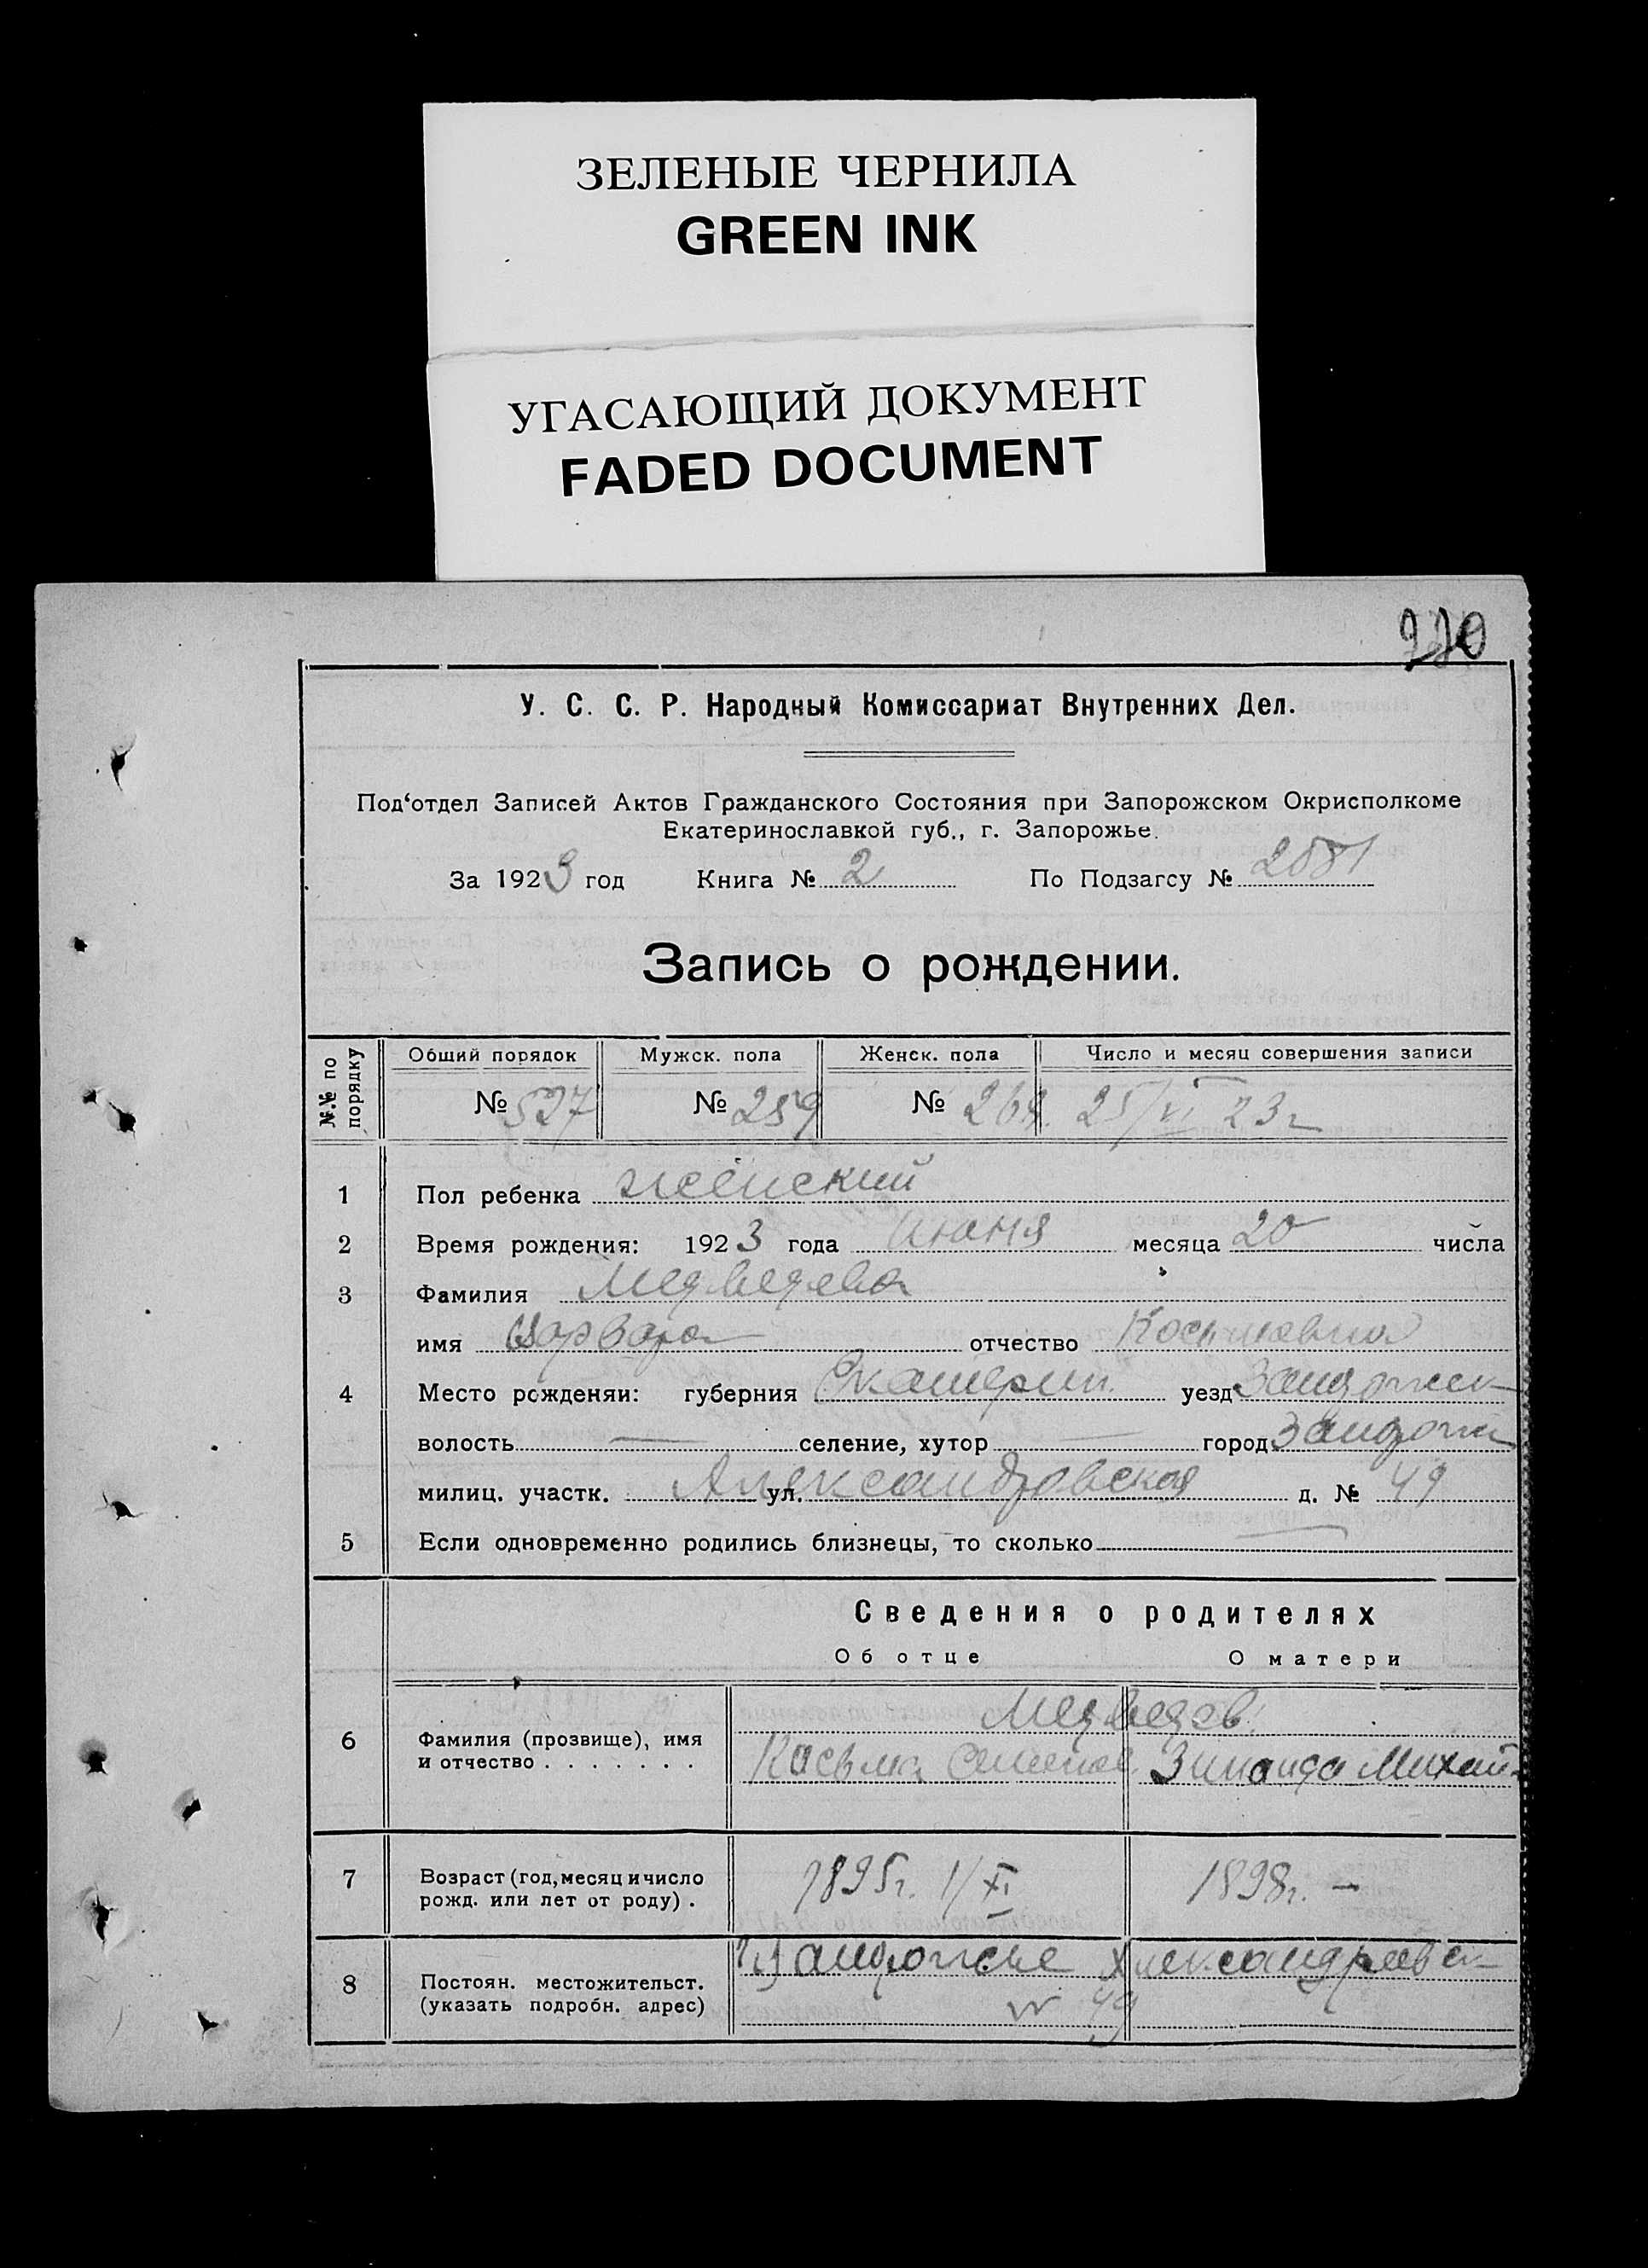 ЗЕЛЕНЫЕ ЧЕРНИЛА
GREEN INK
УГАСАЮЩИЙ ДОКУМЕНТ
FADED DOCUMENT
У. С. С. Р. Народный Комиссариат Внутренних Дел.
Под‘отдел Записей Актов Гражданского Состояния при Запорожском Окрисполкоме
Екатеринославкой губ., г. Запорожье.
За 1923 год Книга № 2 По Подзагсу №
Запись о рождении.
№№ по порядку Общий порядок Мужск. пола Женск. пола Число и месяц совершения записи
№ 527 № 259 № 268 25/VI 23 г
1 Пол ребенка женский
2 Время рождения: 1923 года Июня месяца 20 числа
3 Фамилия Медведева
имя Варвара отчество Косьмовна
4 Место рожденяи: губерния Екатерин. уезд Запорожск
волость — селение, хутор — город Запорож
милиц. участк. ул. Александровская д. № 49
5 Если одновременно родились близнецы, то сколько —
Сведения о родителях
Об отце О матери
Медведев
6 Фамилия (прозвище), имя
и отчество . . . . . . . Касьма Семенов. Зинаида Михай
7 Возраст (год, месяц и число
рожд. или лет от роду) . 1895г. 1/XI 1898г. —
8 Постоян. местожительст. Запорожье Александровск
(указать подробн. адрес) № 49